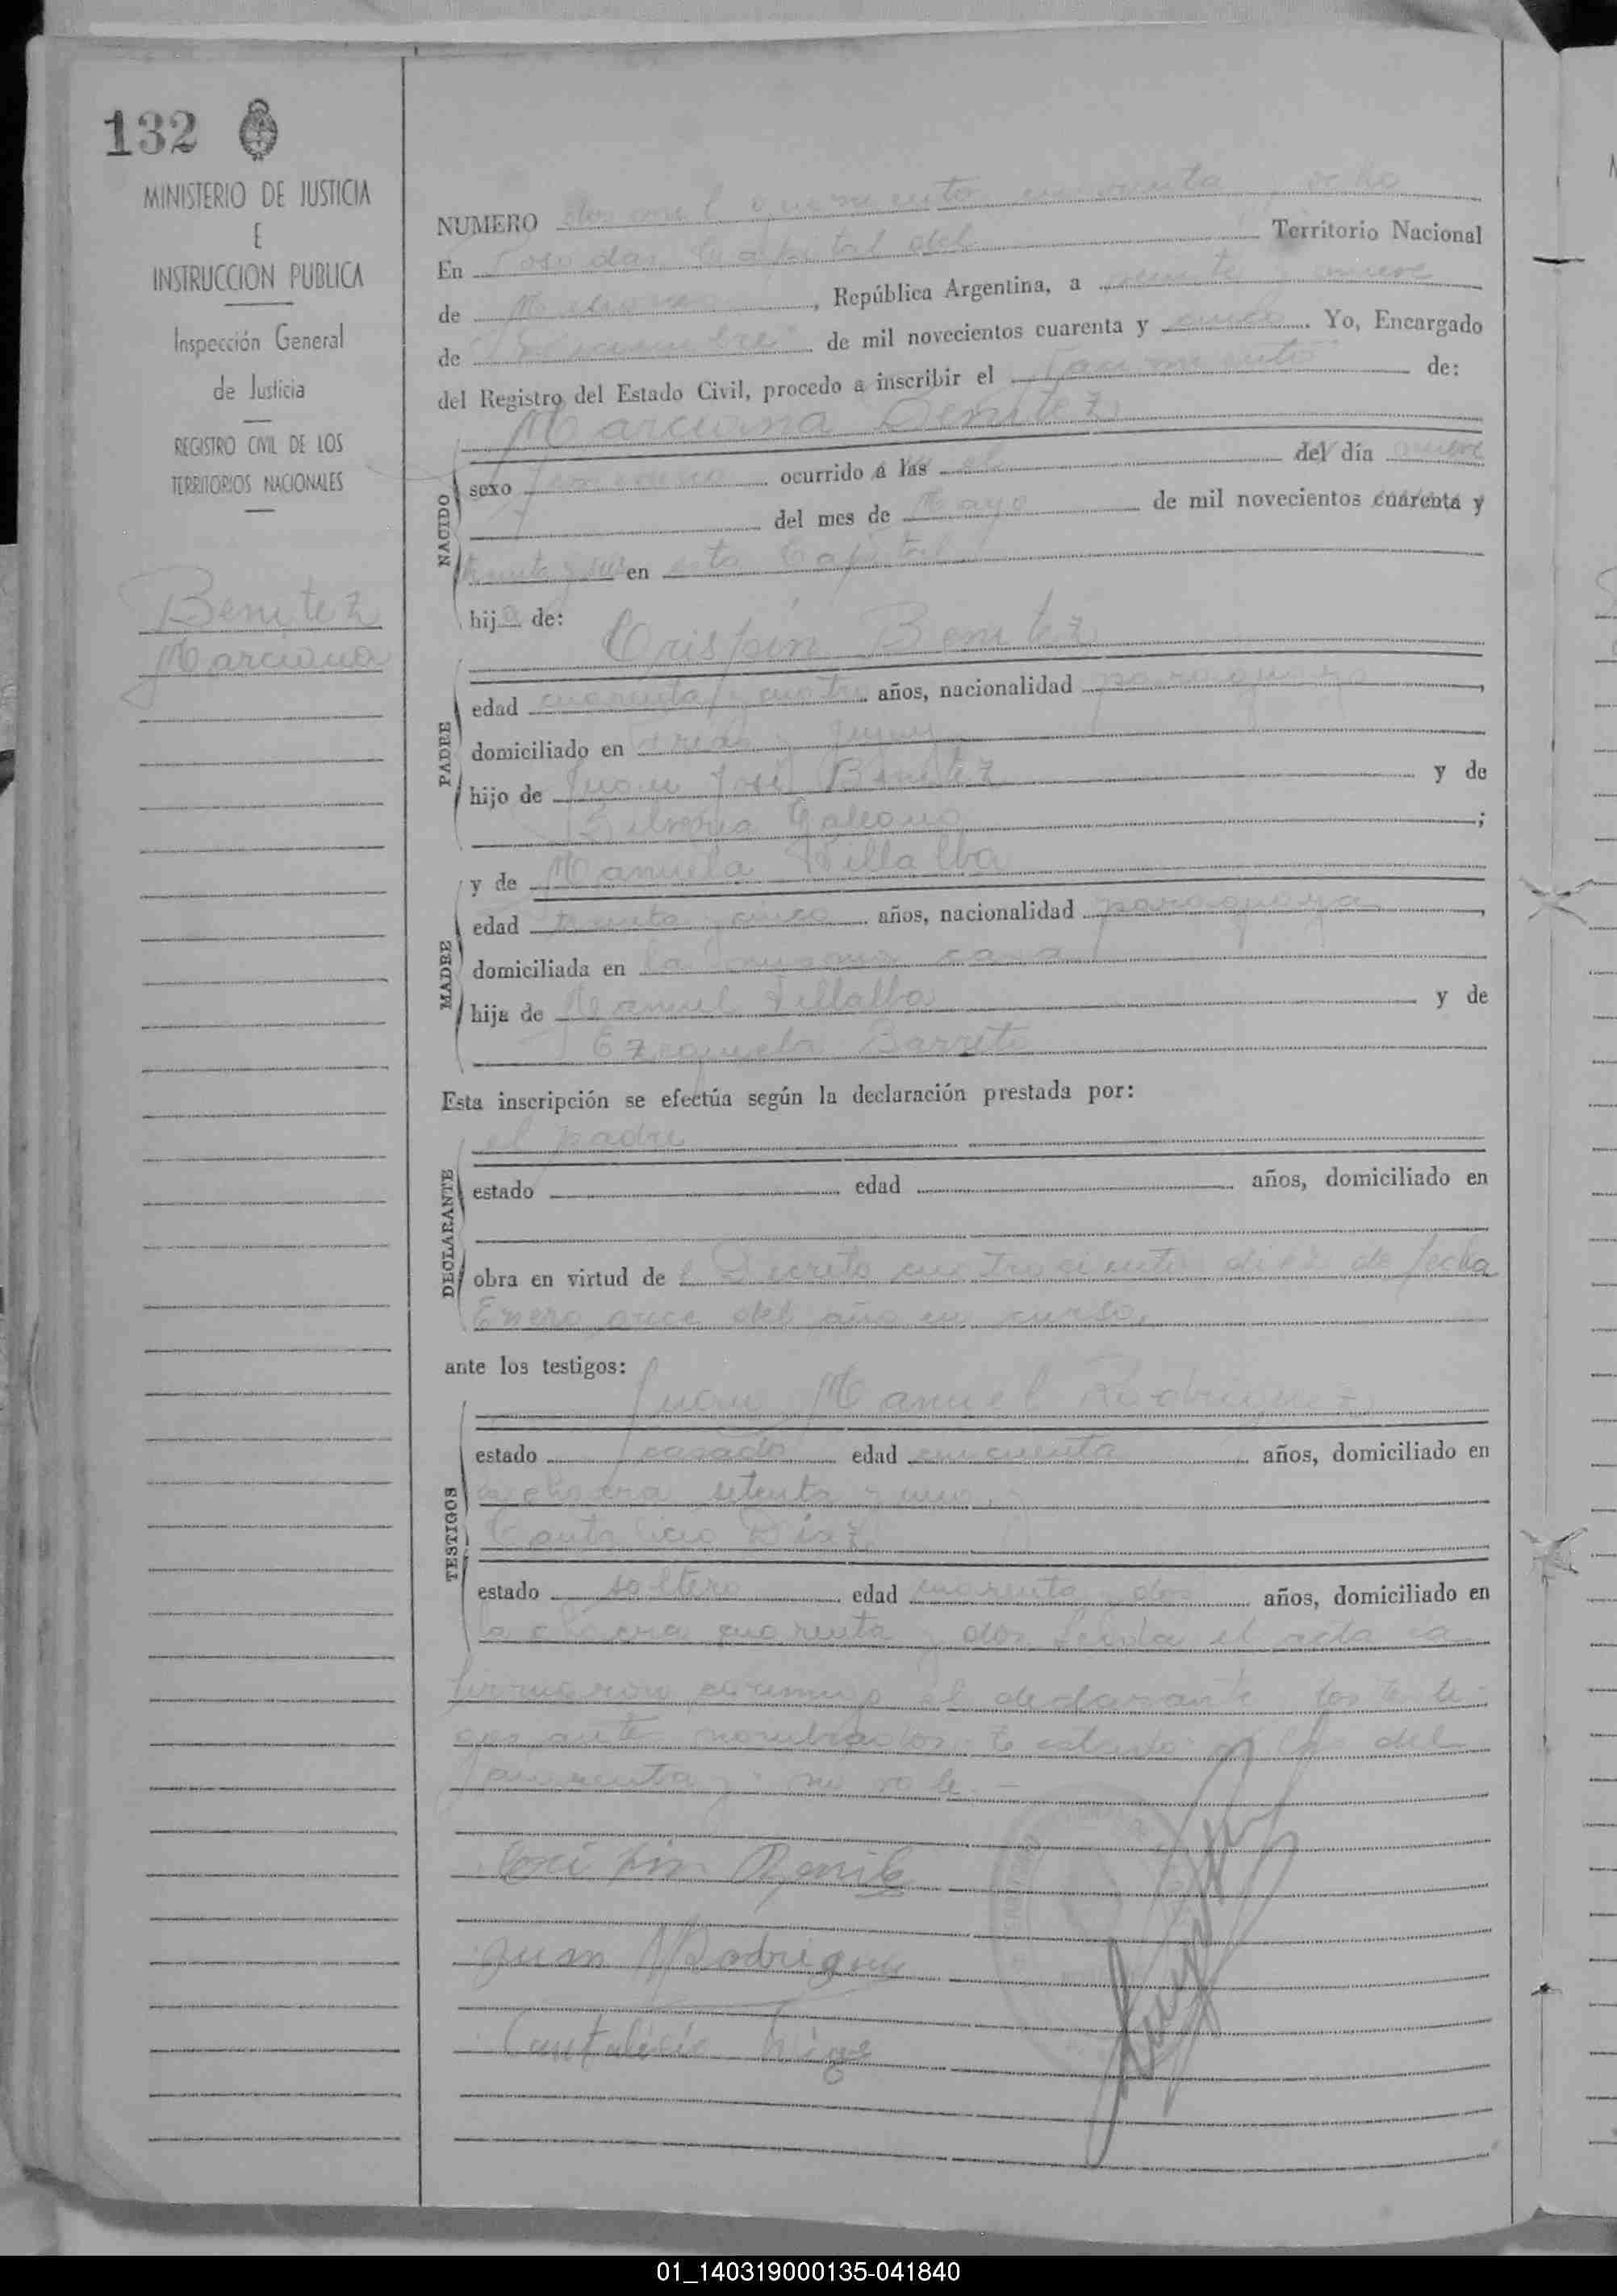 132
MINISTERIO DE JUSTICIA
E
INSTRUCCION PUBLICA
Inspección General
de Justicia
REGISTRO CIVIL DE LOS
TERRITORIOS NACIONALES
Benitez
Marciana
NUMERO dos mil quinientos cincuenta y ocho
En Posadas Capital del Territorio Nacional
de Misiones, República Argentina, a veinte y nueve
de Diciembre de mil novecientos cuarenta y cinco. Yo, Encargado
del Registro del Estado Civil, procedo a inscribir el nacimiento de:
Marciana Benitez
NACIDO
sexo femenino ocurrido a las el del día nueve
del mes de Mayo de mil novecientos cuarenta y
treinta y seis en esta Capital
hija de:
Crispin Benitez
PADRE
edad cuarenta y cuatro años, nacionalidad paraguayo,
domiciliado en
hijo de Juan José Benitez y de
Silveria Galeano;
y de Manuela Villalba
MADRE
edad treinta y cinco años, nacionalidad paraguaya,
domiciliada en la misma casa
hija de Manuel Villalba y de
Ezequiela Barreto
Esta inscripción se efectúa según la declaración prestada por:
el padre
DECLARANTE
estado edad años, domiciliado en
obra en virtud de Decreto cuatrocientos diez de fecha
Enero once del año en curso.
ante los testigos:
Juan Manuel Rodriguez
TESTIGOS
estado casado edad cincuenta años, domiciliado en
chacra setenta y uno y
Cantalicio Diaz
estado soltero edad cuarenta y dos años, domiciliado en
la chacra cuarenta y dos leida el acta la
firmaron conmigo el declarante y los testi-
gos ante nombrados. testado del
cuarenta y: no vale -
Crispin Benitez
Juan M Rodriguez
Cantalicio
01_140319000135-041840